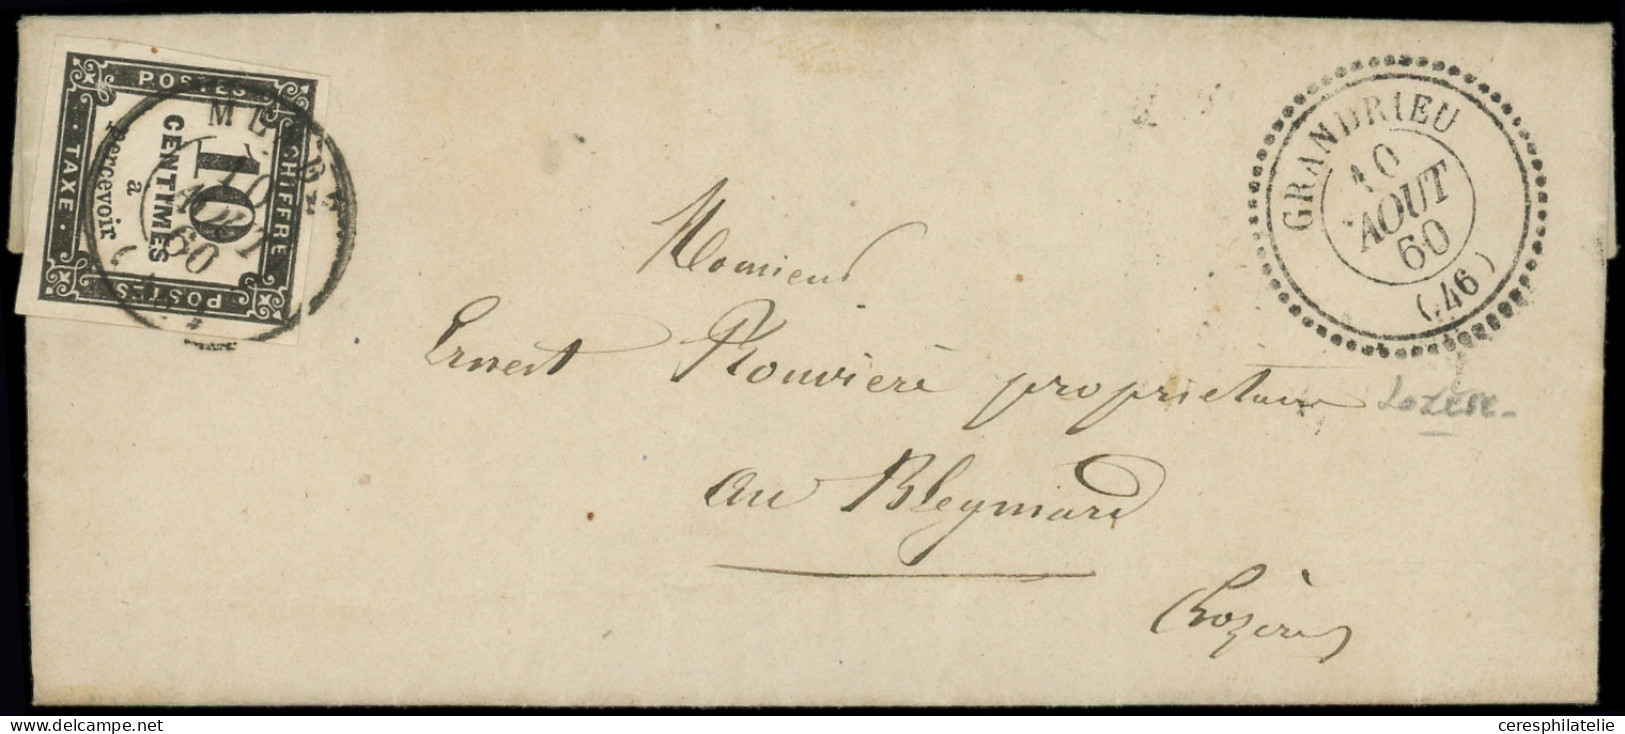 POSTES
CHIFFRE
POSTES
TAXE
10
CENTIMES
à
percevoir
10
60
GRANDRIEU
10
AOUT
60
(46)
Monsieur
Ernest Rouvière propriétaire
Lozère
au Bleymard
Lozère
delcampe.net
ceresphilatelie